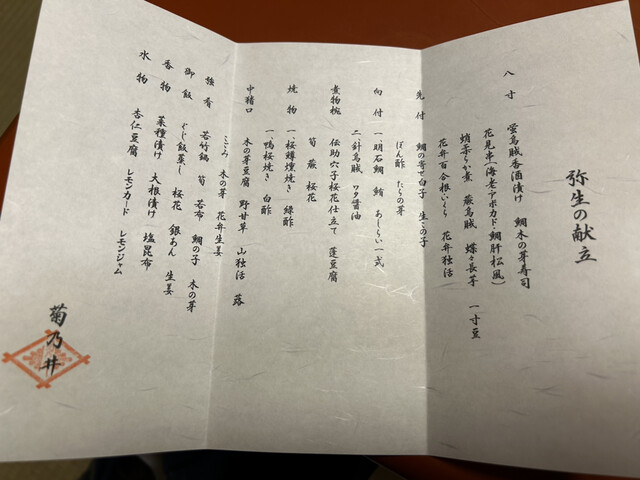 弥生の献立
八寸 蛍烏賊香酒漬け 鯛木の芽寿司
花見串(海老アボカド 鯛肝松風)
蛸柔らか煮 蕨烏賊 蝶々長芋 一寸豆
花弁百合根いくら 花弁独活
先付 鯛の寄せ白子 生このこ
ぽん酢 たらの芽
向付 一、明石鯛 鮪 あしらい一式
二、針烏賊 ワタ醤油
煮物椀 伝助穴子桜花仕立て 蓬豆腐
筍 蕨 桜花
焼物 一、桜鱒燻焼き 緑酢
一、鴨桜焼き 白酢
中猪口 木の芽豆腐 野甘草 山独活 蕗
こごみ 木の芽 花弁生姜
強肴 若竹鍋 筍 若布 鯛の子 木の芽
御飯 ぐじ飯蒸し 桜花 銀あん 生姜
香物 菜種漬け 大根漬け 塩昆布
水物 杏仁豆腐 レモンカード レモンジャム
菊乃井